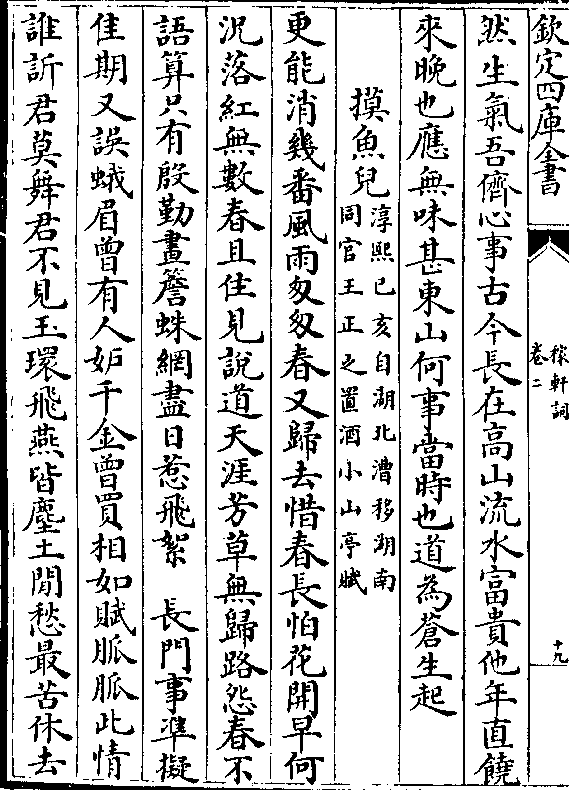 欽定四庫全書
稼軒詞
卷二
十九
然生氣吾儕心事古今長在高山流水富貴他年直饒
來晚也應無味甚東山何事當時也道為蒼生起
摸魚兒
淳熙己亥自湖北漕移湖南
同官王正之置酒小山亭賦
更能消幾番風雨匆匆春又歸去惜春長怕花開早何
況落紅無數春且住見說道天涯芳草無歸路怨春不
語算只有殷勤畫簷蛛網盡日惹飛絮　長門事準擬
佳期又誤蛾眉曾有人妒千金曾買相如賦脈脈此情
誰訴君莫舞君不見玉環飛燕皆塵土閒愁最苦休去